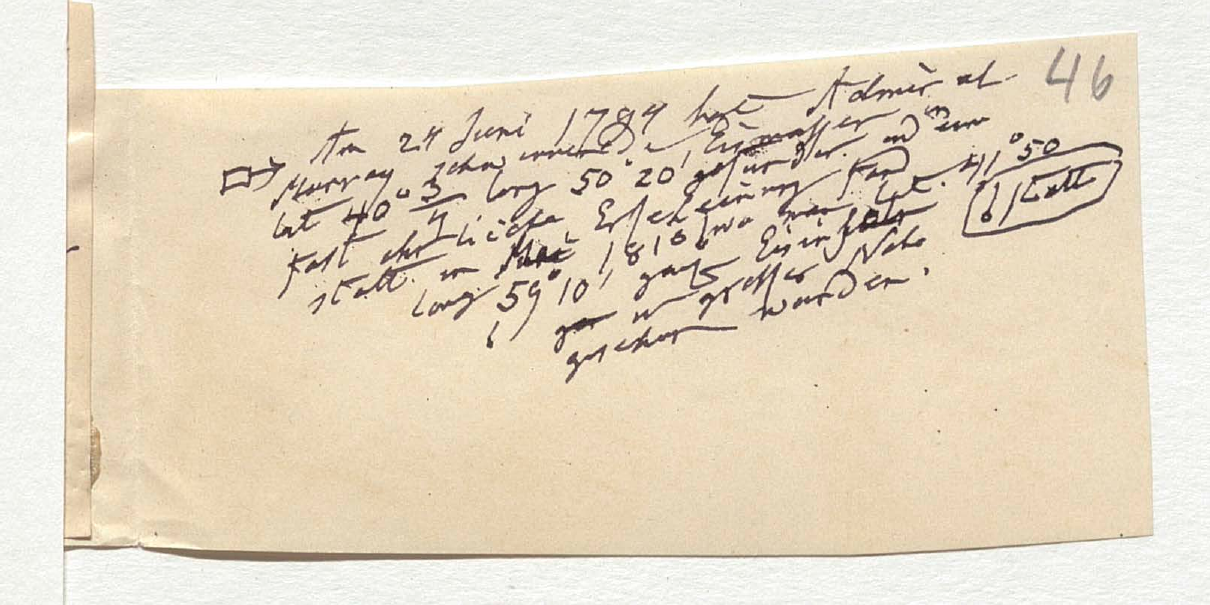 46
Am 24 Juni 1784 hat Admiral
Murray zehn Eismassen in
lat 40° 3/4 long 50° 20' gefunden und eine
fast ähnliche Erscheinung fand
statt im 1818 wo man lat. 41° 50
long 59° 10' ganze Eisinseln
statt
in grosser Nähe
gesehen wurden.